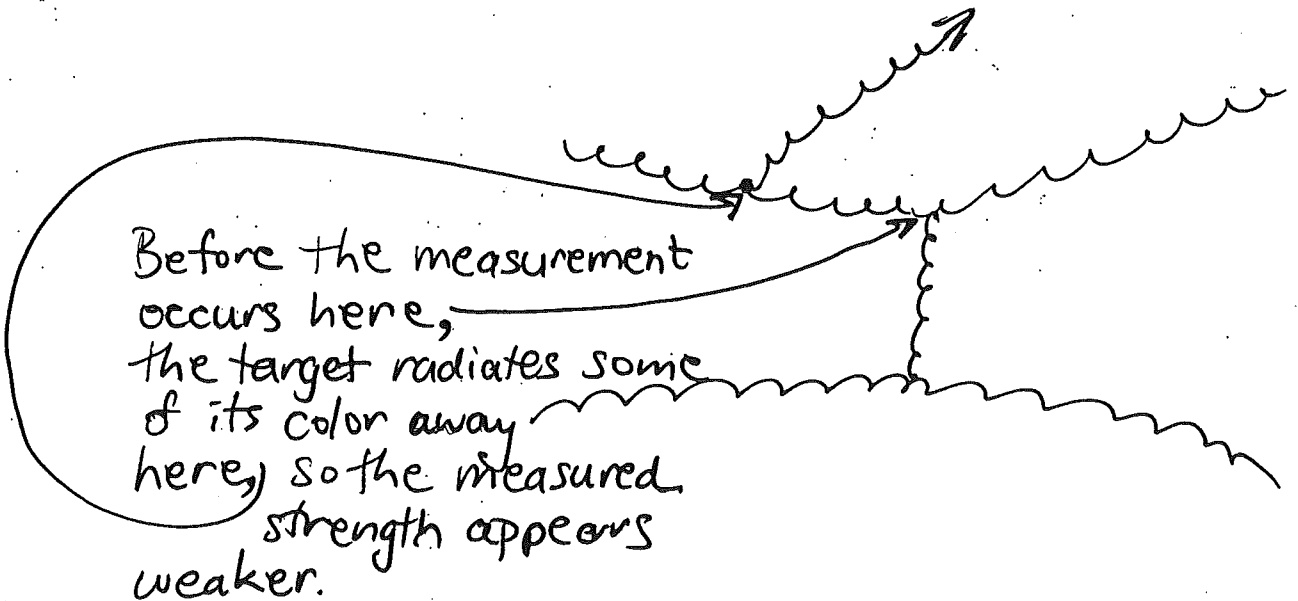 Before the measurement
occurs here,
the target radiates some
of its color away
here, so the measured
strength appears
weaker.